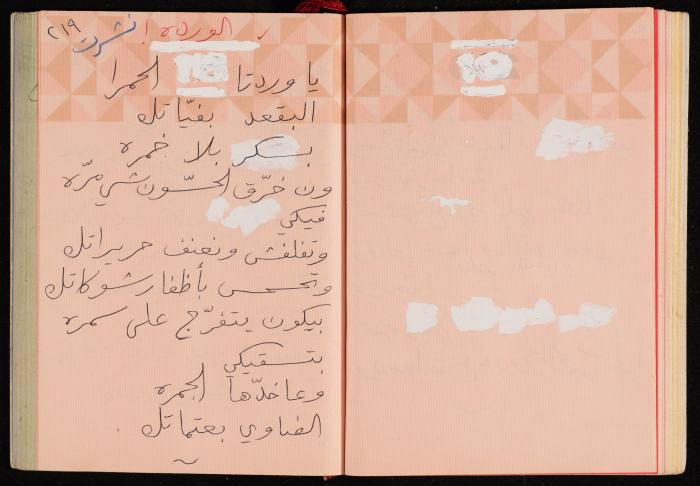 الورده! نشرت ٢١٩
يا وردتنا الحمرا
البقعد بفيّاتك
بسكر بلا خمره
ون خرّق الحسّون شي مرّه
فيكي
وتفلفش ونعنف حريراتك
وتحمس بأظفار شوكاتك
بيكون يتفرّج على سمره
بتسقيكي
وعا خدّها الجمره
الضاوي بعتماتك